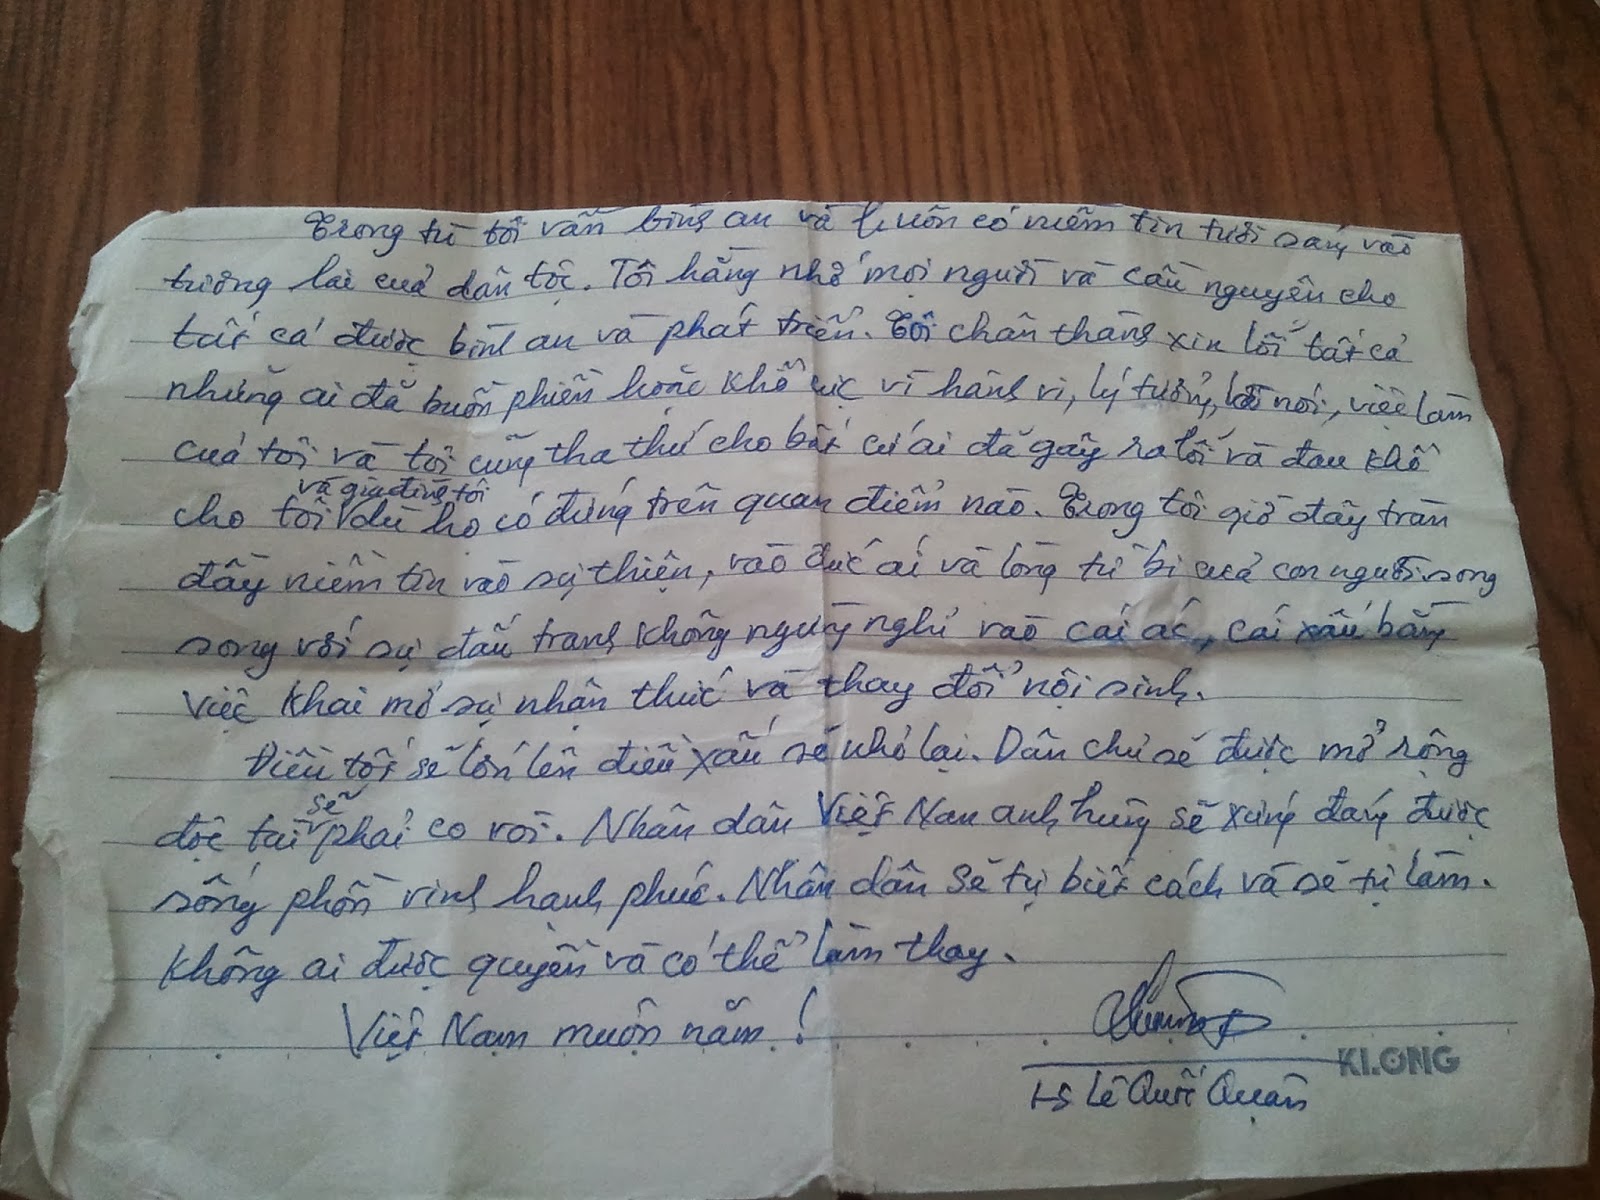 Trong tù tôi vẫn bình an và luôn có niềm tin tươi sáng vào
tương lai của dân tộc. Tôi hằng nhớ mọi người và cầu nguyện cho
tất cả được bình an và phát triển. Tôi chân thành xin lỗi tất cả
những ai đã buồn phiền hoặc khổ cực vì hành vi, lý tưởng, lời nói, việc làm
của tôi và tôi cũng tha thứ cho bất cứ ai đã gây ra lỗi và đau khổ
và gia đình tôi
cho tôi dù họ có đứng trên quan điểm nào. Trong tôi giờ đây tràn
đầy niềm tin vào sự thiện, vào đức ái và lòng từ bi của con người song
song với sự đấu tranh không ngừng nghỉ vào cái ác, cái xấu bằng
việc khai mở sự nhận thức và thay đổi nội sinh.
Điều tốt sẽ lớn lên điều xấu sẽ nhỏ lại. Dân chủ sẽ được mở rộng
sẽ
độc tài phải co vòi. Nhân dân Việt Nam anh hùng sẽ xứng đáng được
sống phồn vinh hạnh phúc. Nhân dân sẽ tự biết cách và sẽ tự làm.
Không ai được quyền và có thể làm thay.
Việt Nam muôn năm!
KLONG
LS Lê Quốc Quân